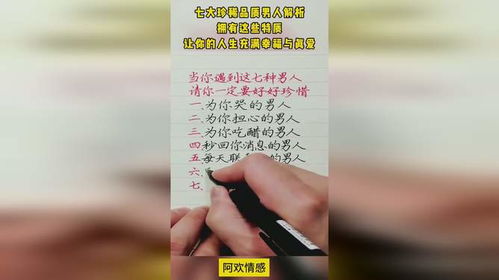 七大珍稀品质男人解析
拥有这些特质
让你的人生充满幸福与真爱
当你遇到这七种男人
请你一定要好好珍惜
一.为你哭的男人
二.为你担心的男人
三.为你吃醋的男人
四秒回你消息的男人
五每天联 的男人
六.
七.
阿欢情感